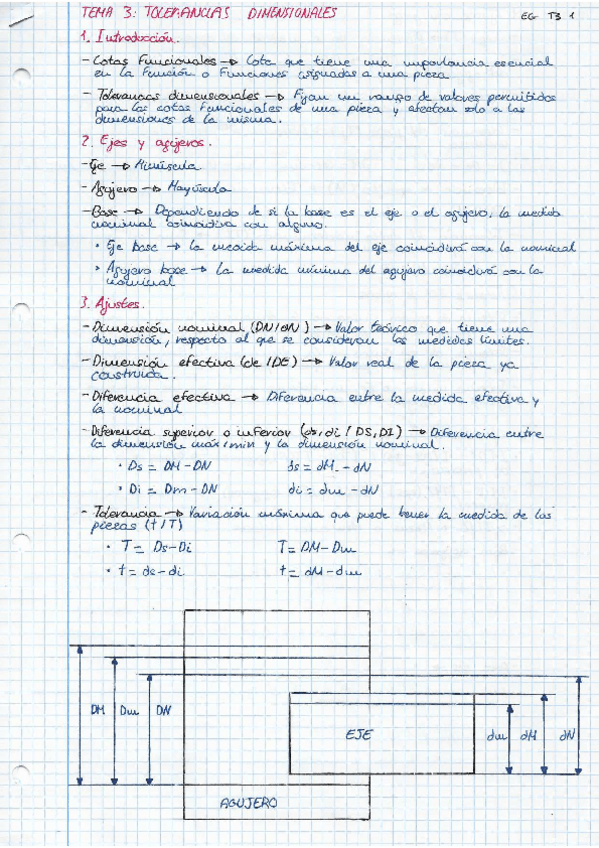 TEMA 3: TOLERANCIAS DIMENSIONALES
EG T3 1
1. Introducción.
- Cotas Funcionales → Cota que tiene una importancia esencial
en la Función o Funciones asignadas a una pieza
- Tolerancias dimensionales → Fijan un rango de valores permitidos
para las cotas Funcionales de una pieza y afectan solo a las
dimensiones de la misma.
2. Ejes y agujeros.
- Eje → Minúscula
- Agujero → Mayúscula
- Base → Dependiendo de si la base es el eje o el agujero, la medida
nominal coincidirá con alguno.
• Eje base → la medida máxima del eje coincidirá con la nominal
• Agujero base → La medida mínima del agujero coincidirá con la
nominal
3. Ajustes.
- Dimensión nominal (DN/dN) → Valor teórico que tiene una
dimensión, respecto al que se consideran las medidas límites.
- Dimensión efectiva (de/DE) → Valor real de la pieza ya
construida.
- Diferencia efectiva → Diferencia entre la medida efectiva y
la nominal
- Diferencia superior o inferior (ds,di/DS,DI) → Diferencia entre
la dimensión máx/min y la dimensión nominal.
• Ds = DM - DN ds = dM - dN
• Di = Dm - DN di = dm - dN
- Tolerancia → Variación máxima que puede tener la medida de las
piezas (t/T)
• T = Ds - Di T = DM - Dm
• t = ds - di t = dM - dm
DM Dm DN
EJE
dm dM dN
AGUJERO